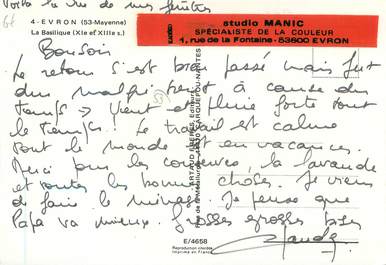 Voilà la vue de nos fenêtres
4 - EVRON (53-Mayenne)
La Basilique (XIe et XIIIe s.)
studio MANIC
SPÉCIALISTE DE LA COULEUR
1, rue de la Fontaine - 53600 EVRON
Bonsoir
Le retour s'est bien passé mais fut
dur malgré tout à cause du
temps → vent et pluie forte tout
le temps. Le travail est calme
tout le monde est en vacances.
Merci pour les confitures, la lavande
et toutes les bonnes choses. Je viens
de faire le ménage. Je pense que
Papa va mieux. Grosses grosses bises
E/4658
Reproduction interdite
Imprimé en France